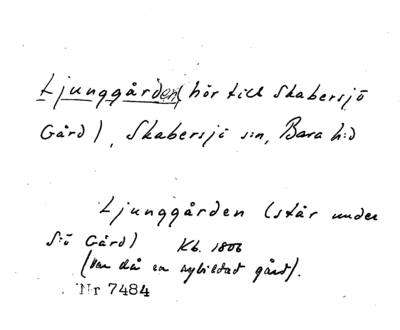 Ljunggården (hör till Skabersjö
Gård), Skabersjö s:n, Bara h:d
Ljunggården (står under
S:ö Gård) Kb. 1806
(var då en nybildad gård).
Nr 7484